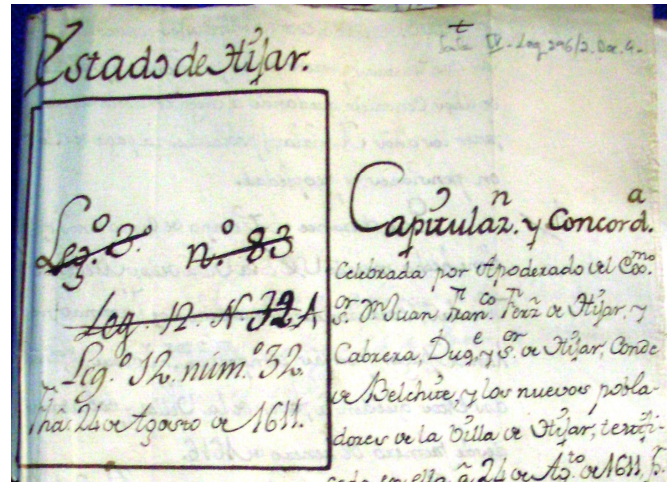 Estado de Híjar.
Sala IV - Leg. 296/2. Doc. 4-
Leg.º 3.º n.º 83
3.
Leg. 12. N. 32 A
Leg.º 12. núm.º 32.
fha. 24 de Agosto de 1611.
Capitulaz.n y Concord.a
Celebrada por Apoderado del Exmo.
S.or D.n Juan Fran.co Ferz. de Híjar, y
Cabrera, Duq.e y S.or de Híjar, Conde
de Belchite, y los nuevos pobla-
dores de la Villa de Híjar, testifi-
cada en ella á 24 de Ag.to de 1611, p.